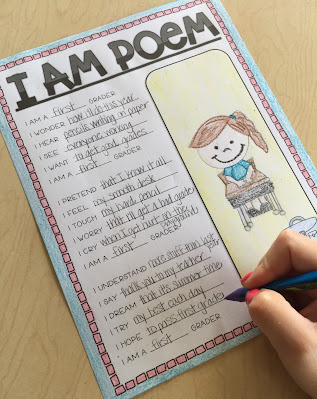 I AM POEM
I AM A first GRADER
I WONDER how I'll do this year
I HEAR pencils writing in paper
I SEE everyone working
I WANT to get good grades
I AM A first GRADER
I PRETEND that I know it all
I FEEL my smooth desk
I TOUCH my hard pencil
I WORRY that I'll get a bad grade
I CRY when I get hurt on the
playground
I AM A first GRADER
I UNDERSTAND more stuff than last
year
I SAY thank you to my teacher
I DREAM that it's summer time
I TRY my best each day
I HOPE to pass first grade
I AM A first GRADER